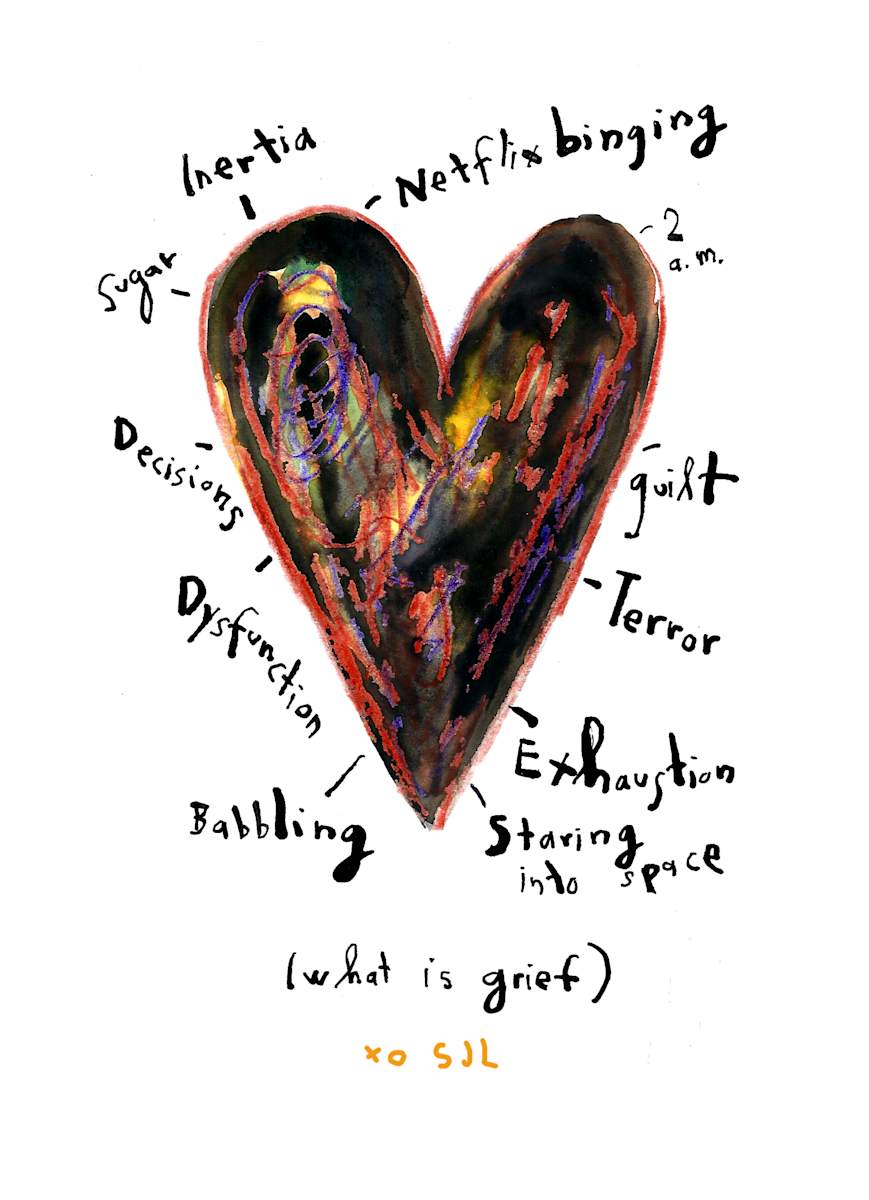 Inertia
Netflix binging
Sugar
2
a.m.
Decisions
guilt
Dysfunction
Terror
Babbling
Exhaustion
Staring
into space
(what is grief)
xo SJL